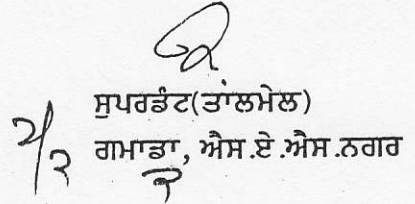 ਸੁਪਰਡੰਟ(ਤਾਂਲਮੇਲ)
ਗਮਾਡਾ, ਐਸ.ਏ.ਐਸ.ਨਗਰ